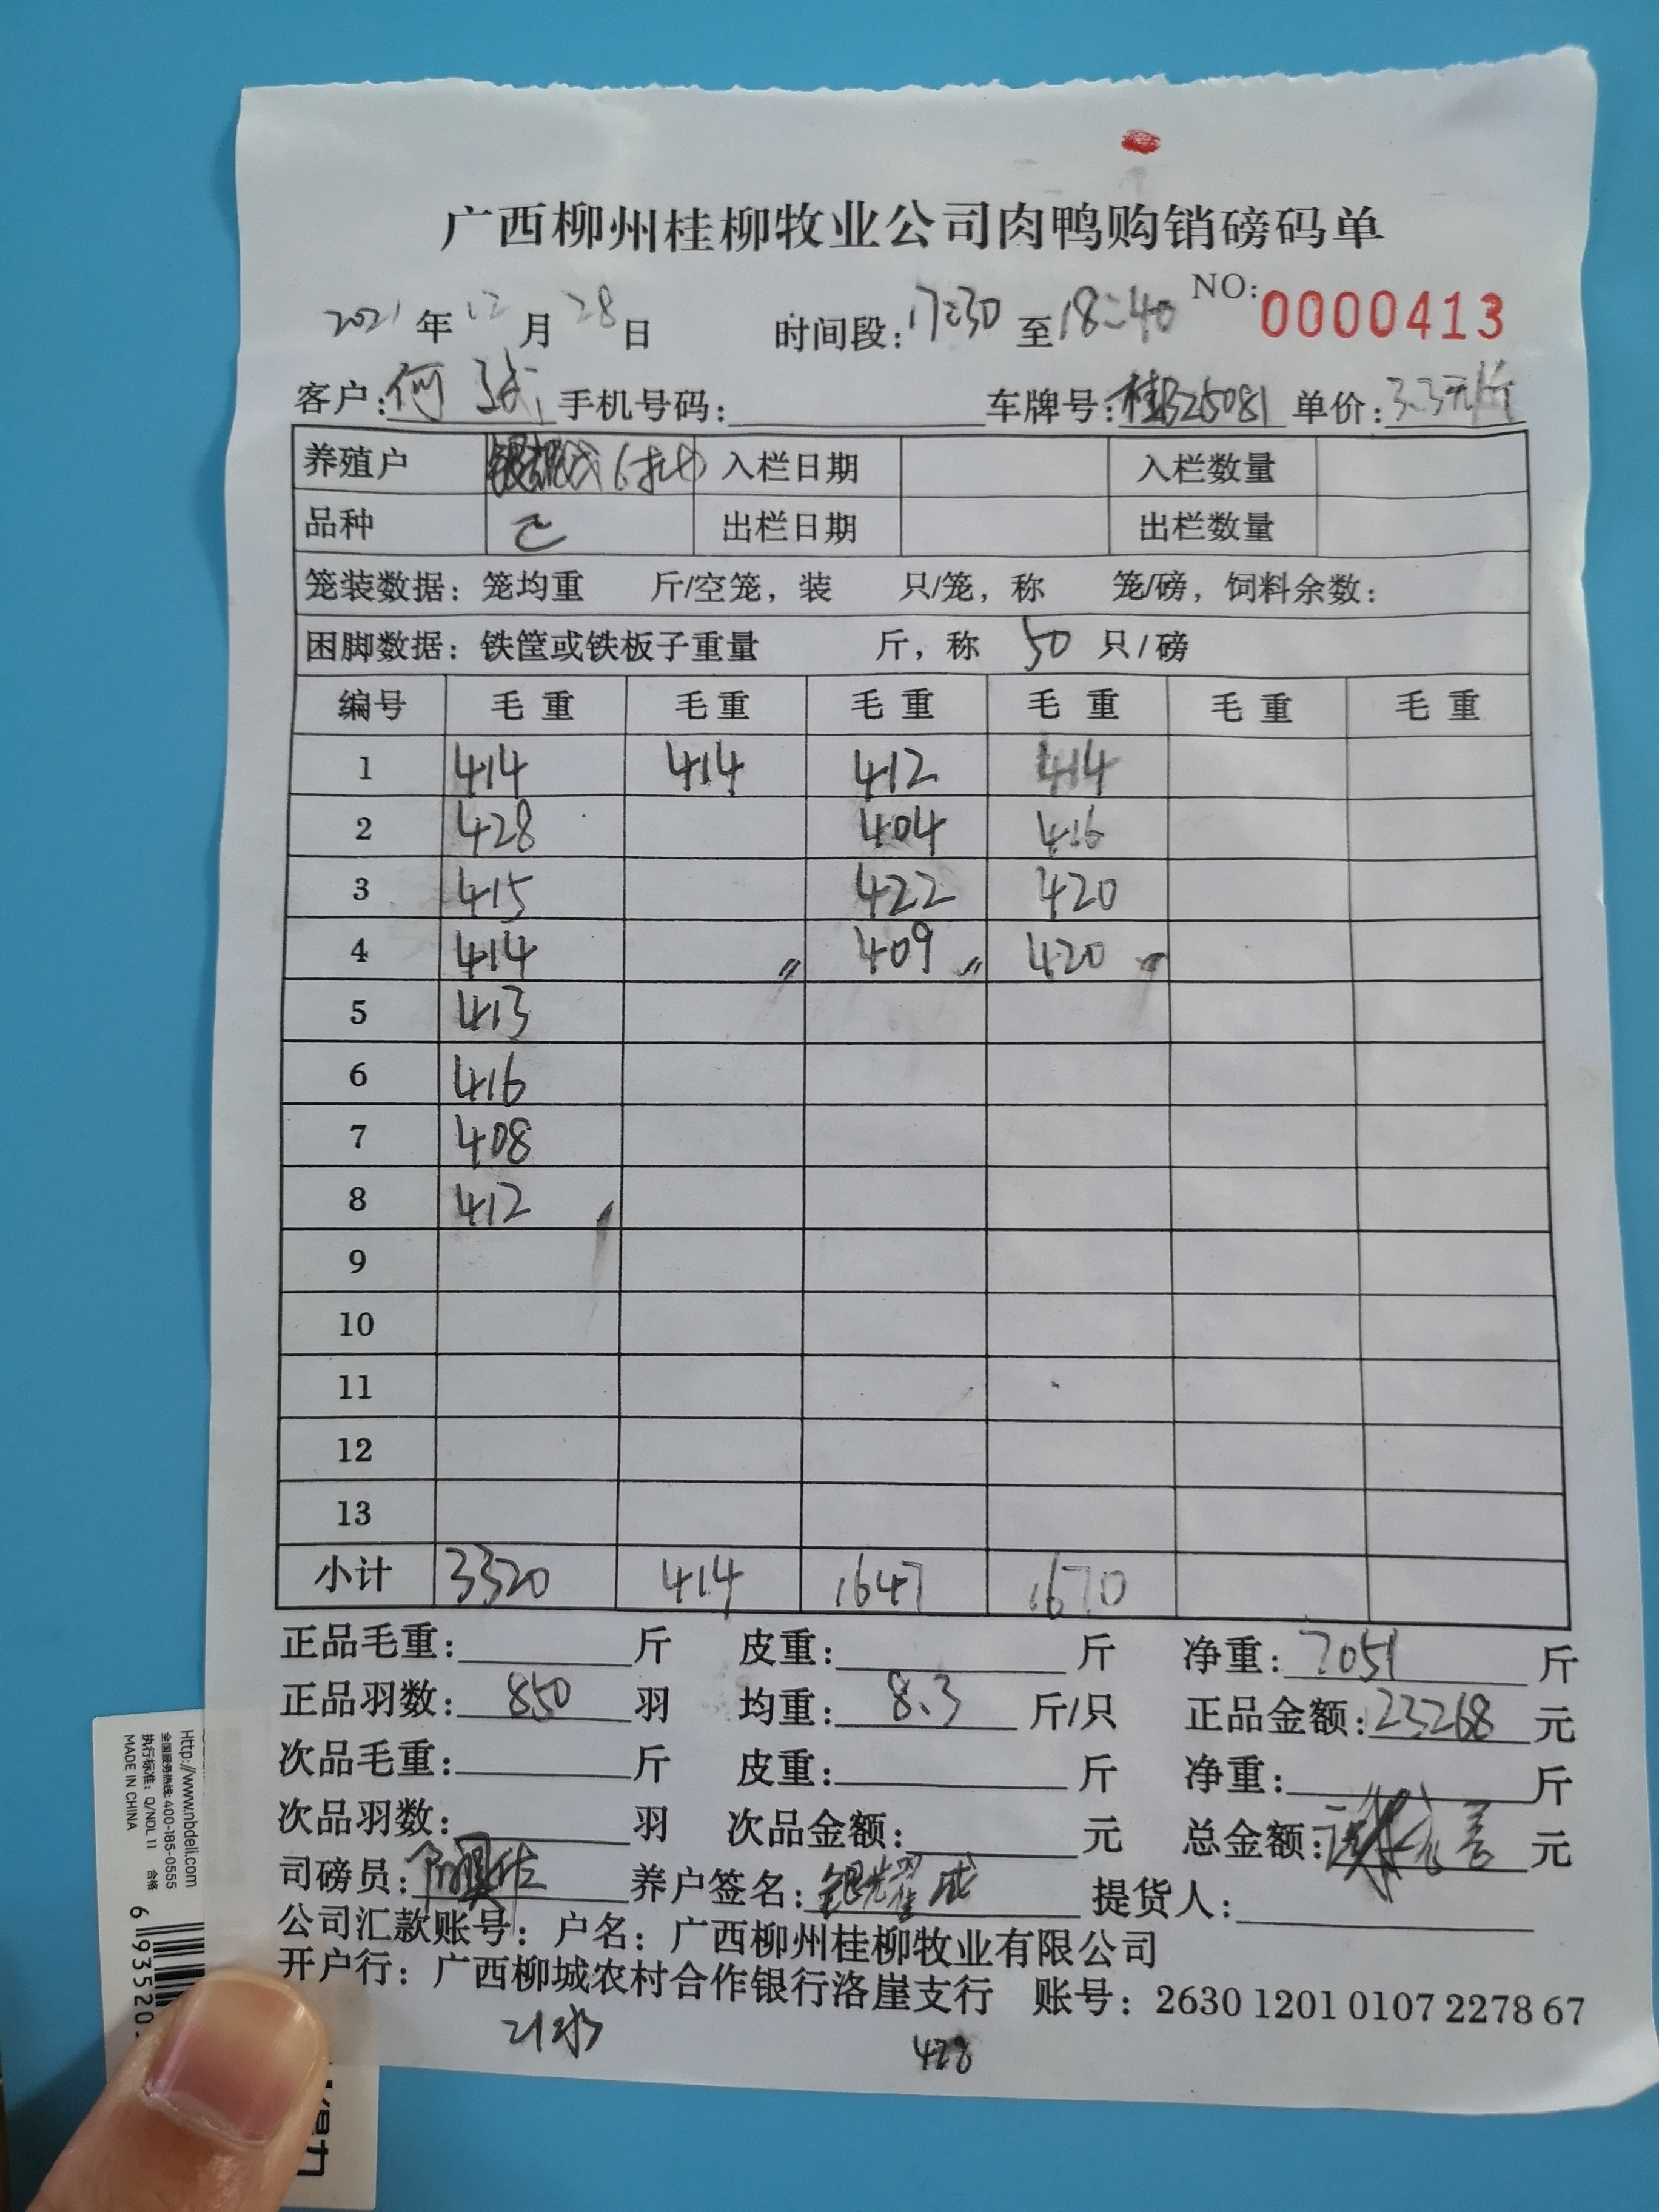 广西柳州桂柳牧业公司肉鸭购销磅码单
NO: 0000413
2021年12月28日 时间段: 17:30 至 18:40
客户: 何 手机号码: 车牌号: 桂B25081 单价: 3.3元/斤
养殖户 入栏日期 入栏数量
品种 出栏日期 出栏数量
笼装数据: 笼均重 斤/空笼, 装 只/笼, 称 笼/磅, 饲料余数:
困脚数据: 铁筐或铁板子重量 斤, 称 50 只/磅
编号 毛重 毛重 毛重 毛重 毛重 毛重
1 414 414 412 414
2 428 404 416
3 415 422 420
4 414 〃 409 〃 420
5 413
6 416
7 408
8 412
9
10
11
12
13
小计 3320 414 1647 1670
正品毛重: 斤 皮重: 斤 净重: 7051 斤
正品羽数: 850 羽 均重: 8.3 斤/只 正品金额: 23268 元
次品毛重: 斤 皮重: 斤 净重: 斤
次品羽数: 羽 次品金额: 元 总金额: 元
司磅员: 养户签名: 银耀成 提货人:
公司汇款账号: 户名: 广西柳州桂柳牧业有限公司
开户行: 广西柳城农村合作银行洛崖支行 账号: 2630 1201 0107 2278 67
428
Http://www.nbdeli.com
全国服务热线:400-185-0555
执行标准: Q/NDL 11 合格
MADE IN CHINA
6 93520